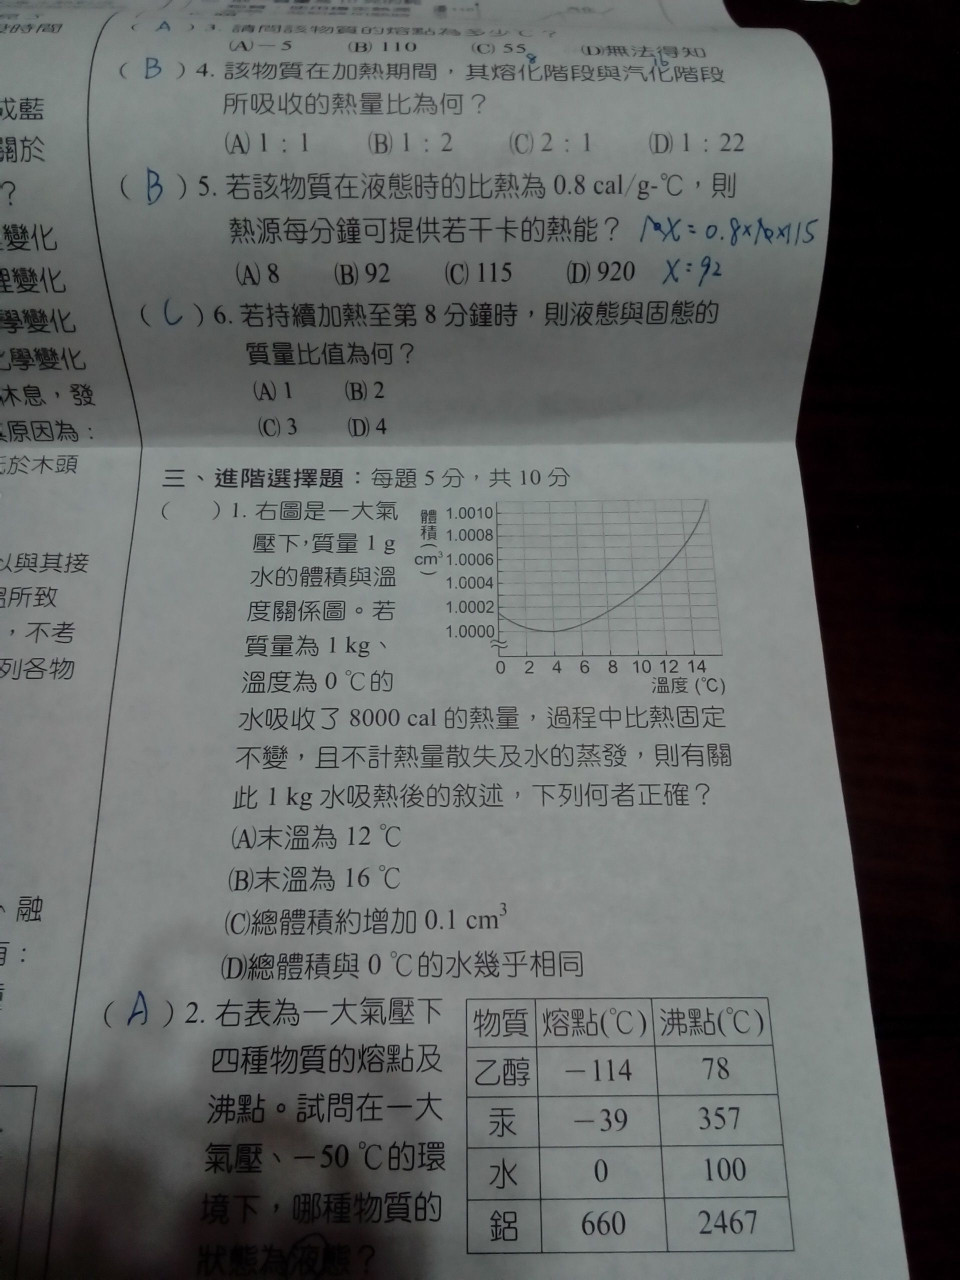 時間
成藍
關於
?
變化
理變化
學變化
化學變化
休息,發
原因為:
於木頭
以與其接
所致
,不考
列各物
、融
( A ) 3. 請問該物質的熔點為多少℃?
(A)-5 (B) 110 (C) 55 (D)無法得知
8 16
( B ) 4. 該物質在加熱期間,其熔化階段與汽化階段
所吸收的熱量比為何?
(A) 1:1 (B) 1:2 (C) 2:1 (D) 1:22
( B ) 5. 若該物質在液態時的比熱為 0.8 cal/g-℃,則
熱源每分鐘可提供若干卡的熱能? 10X=0.8×10×115
(A) 8 (B) 92 (C) 115 (D) 920 X=92
( C ) 6. 若持續加熱至第 8 分鐘時,則液態與固態的
質量比值為何?
(A) 1 (B) 2
(C) 3 (D) 4
三、進階選擇題:每題 5 分,共 10 分
( ) 1. 右圖是一大氣
壓下,質量 1 g
水的體積與溫
度關係圖。若
質量為 1 kg、
溫度為 0 ℃的
體積(cm³)
1.0010
1.0008
1.0006
1.0004
1.0002
1.0000
0 2 4 6 8 10 12 14
溫度 (℃)
水吸收了 8000 cal 的熱量,過程中比熱固定
不變,且不計熱量散失及水的蒸發,則有關
此 1 kg 水吸熱後的敘述,下列何者正確?
(A)末溫為 12 ℃
(B)末溫為 16 ℃
(C)總體積約增加 0.1 cm³
(D)總體積與 0 ℃的水幾乎相同
( A ) 2. 右表為一大氣壓下
四種物質的熔點及
沸點。試問在一大
氣壓、-50 ℃的環
境下,哪種物質的
狀態為液態?
物質 熔點(℃) 沸點(℃)
乙醇 -114 78
汞 -39 357
水 0 100
鋁 660 2467